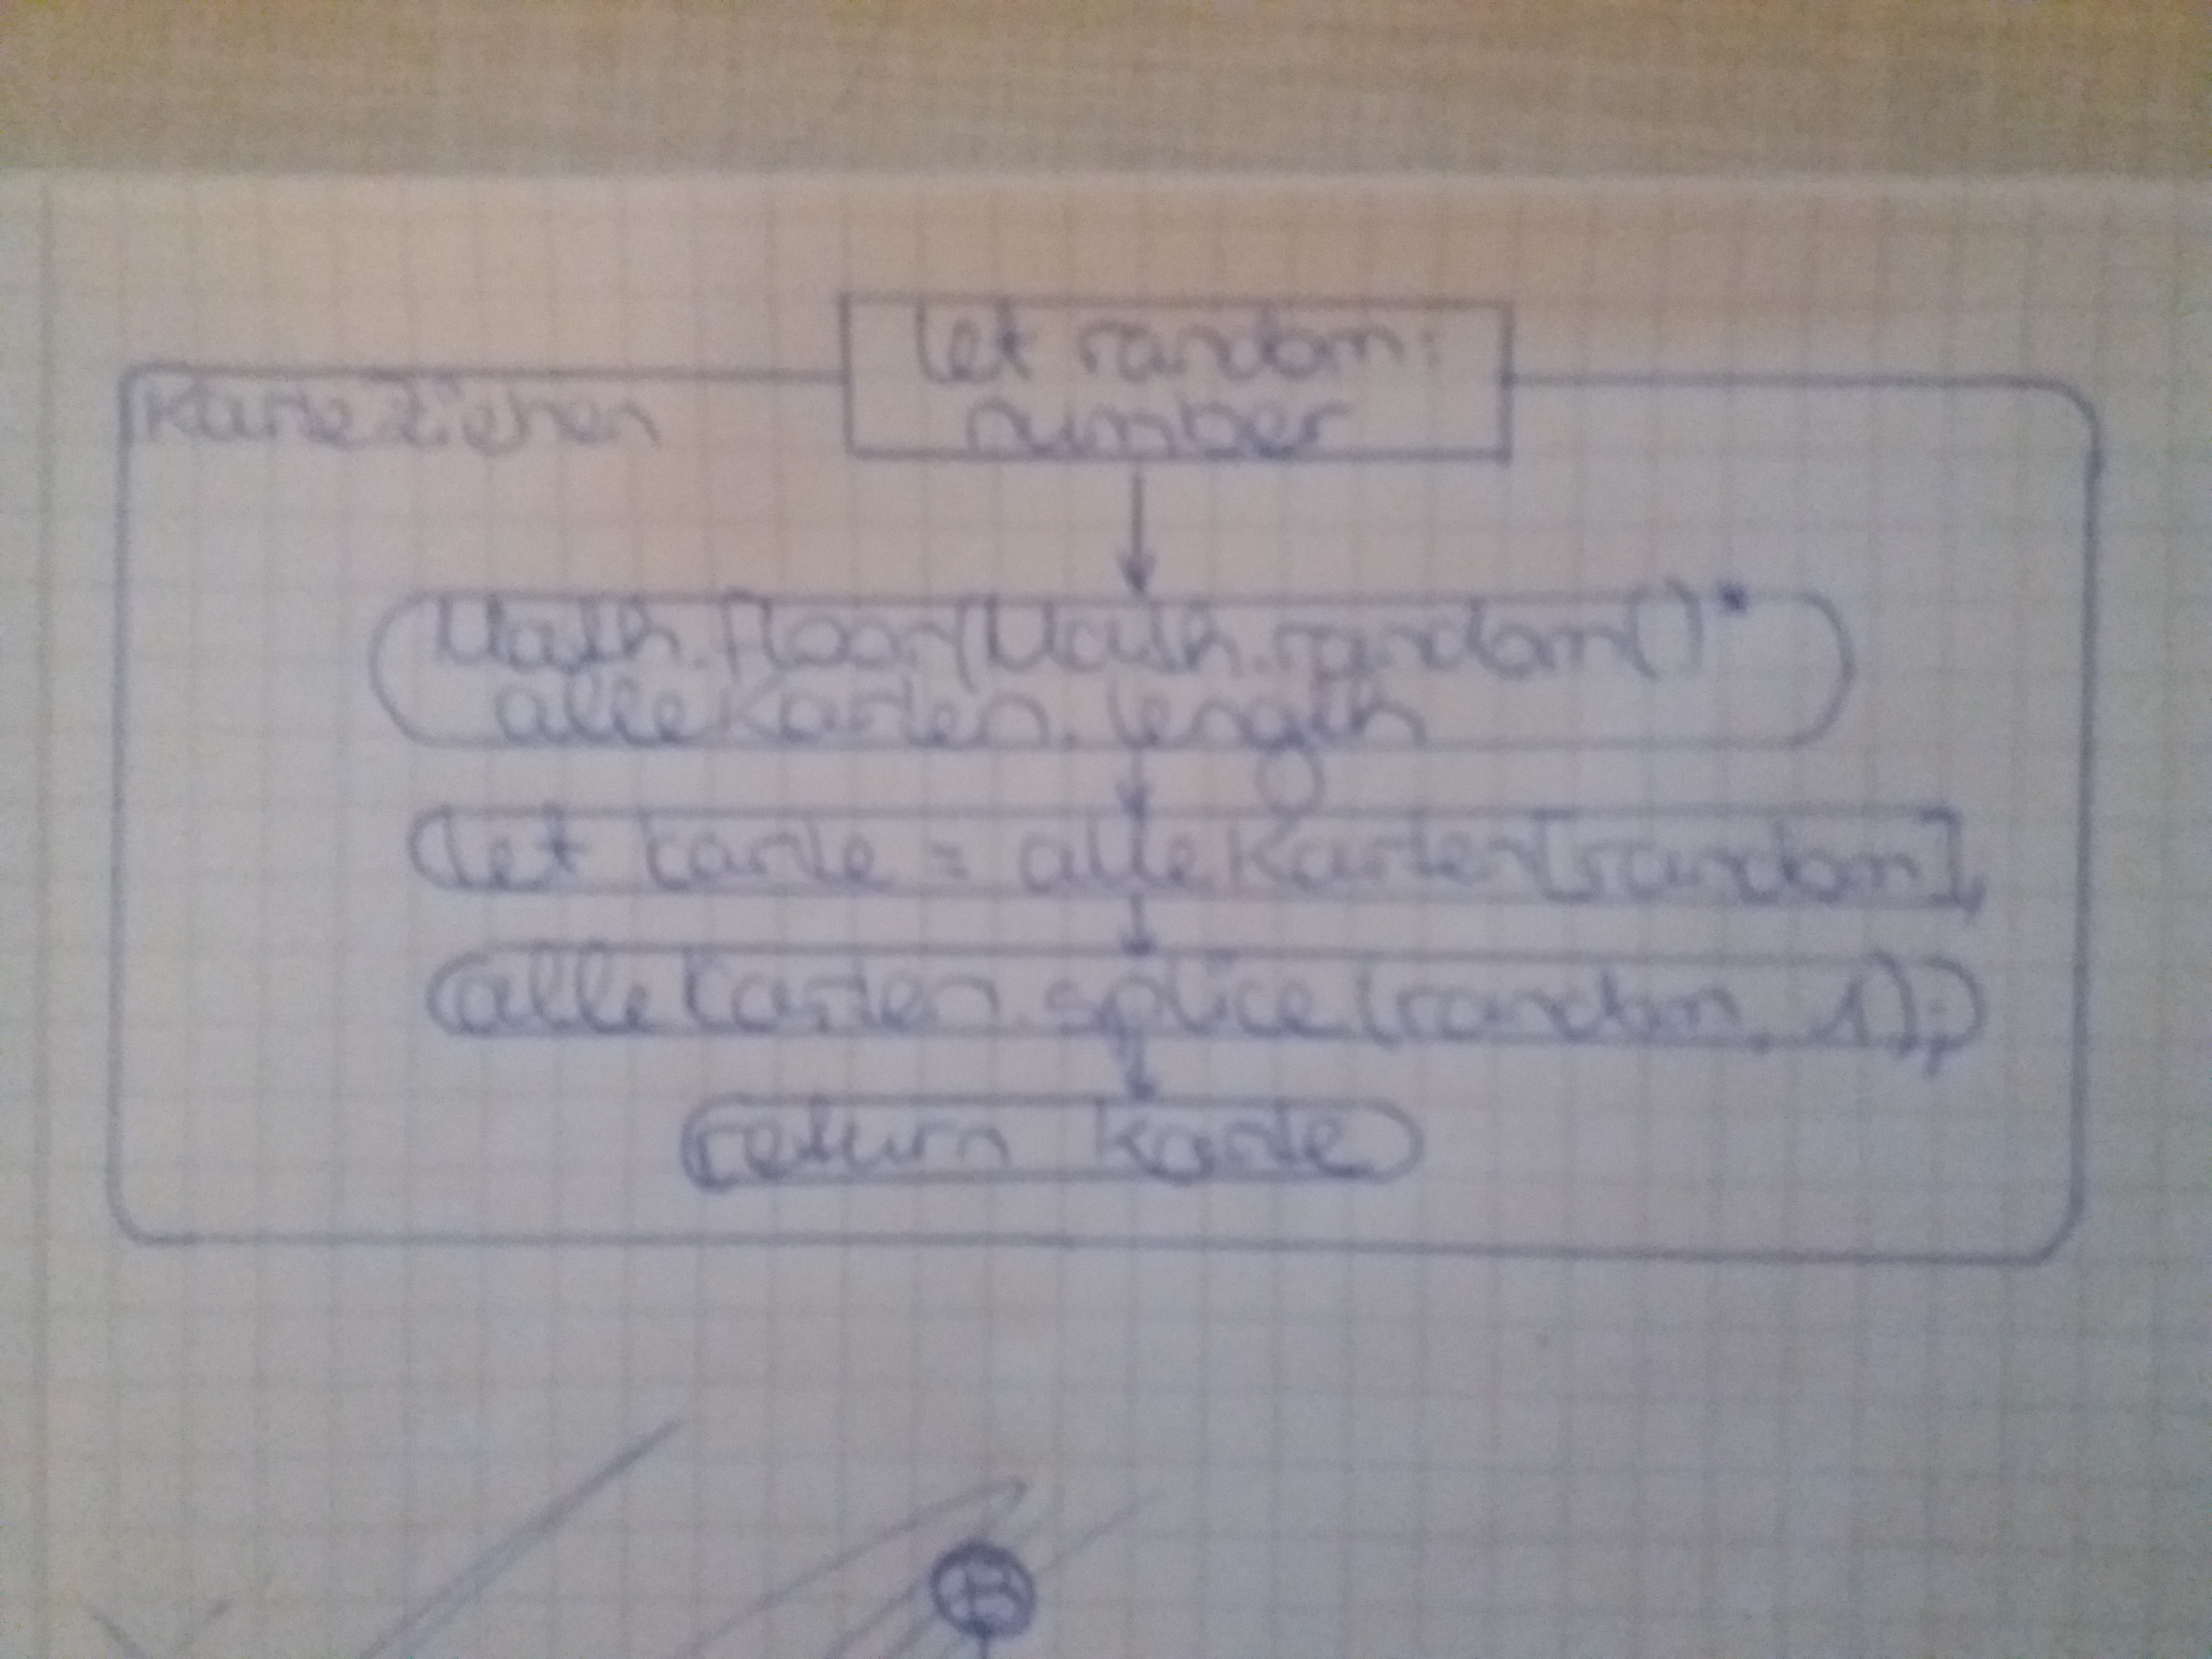 Karte ziehen
let random:
number
Math.floor(Math.random()*
alleKarten.length
let karte = alleKarten[random]
alleKarten.splice(random, 1);
return karte
B